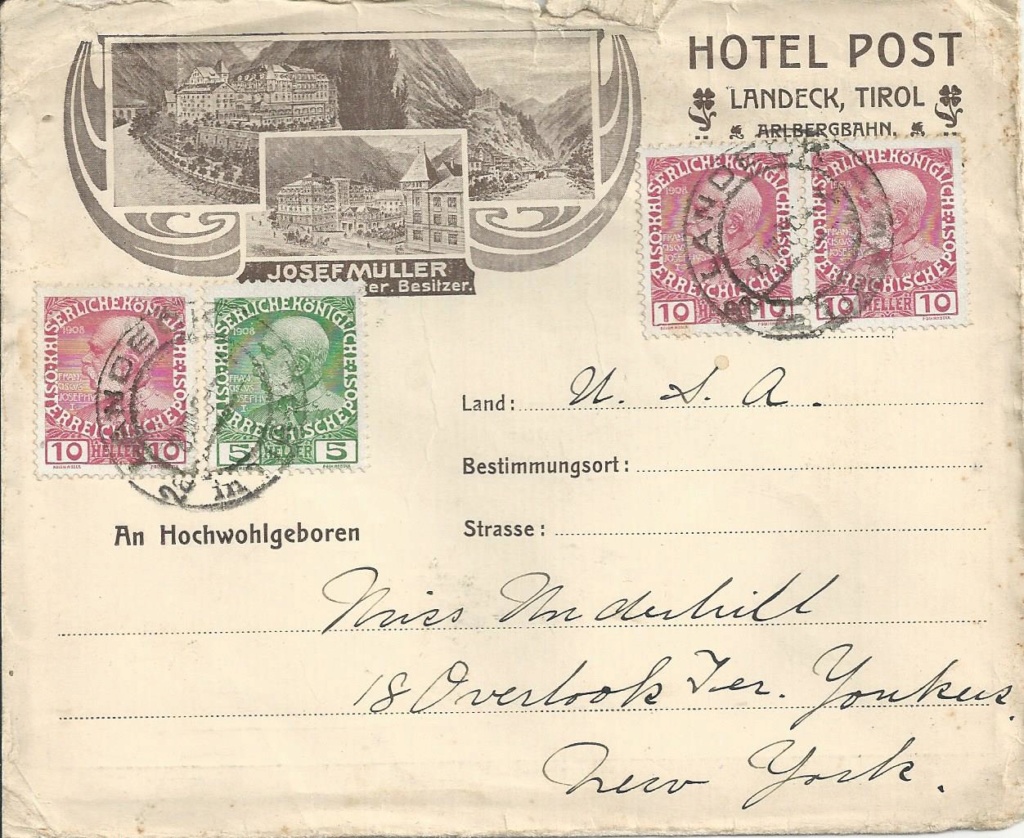 HOTEL POST
LANDECK, TIROL
ARLBERGBAHN.
JOSEF MÜLLER
ter. Besitzer.
KAISERLICHE KÖNIGLICHE ÖSTERREICHISCHE POST
1908
10 HELLER 10
KAISERLICHE KÖNIGLICHE ÖSTERREICHISCHE POST
1908
10 HELLER 10
LANDECK
KAISERLICHE KÖNIGLICHE ÖSTERREICHISCHE POST
1908
FRANCISCUS JOSEPHUS I
10 HELLER 10
KAISERLICHE KÖNIGLICHE ÖSTERREICHISCHE POST
1908
FRANCISCUS JOSEPHUS I
5 HELLER 5
Land: U. S. A.
Bestimmungsort:
Strasse:
An Hochwohlgeboren
Miss Underhill
18 Overlook Ter. Yonkers,
New York.